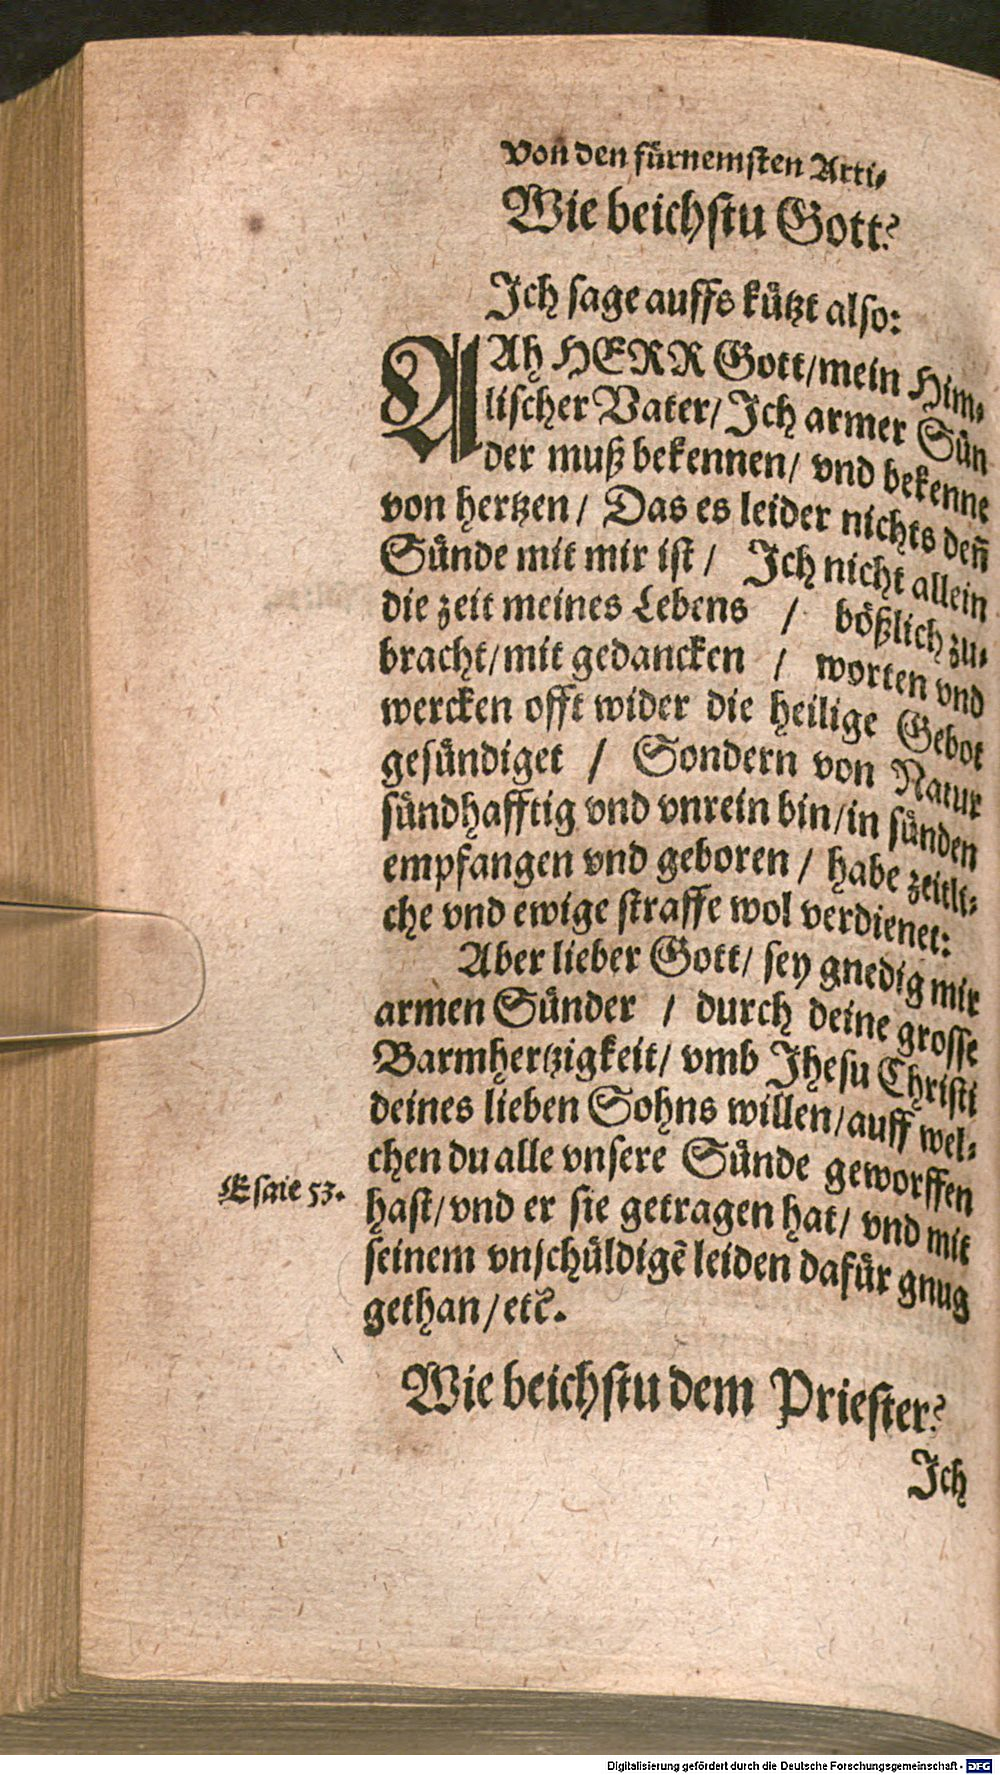 Von den fürnemsten Arti⸗
Wie beichstu Gott?
Ich sage auffs kützt also:
AAh HERR Gott/mein Him⸗
lischer Vater/ Ich armer Sün
der muß bekennen/ vnd bekenne
von hertzen/ Das es leider nichts deñ
Sünde mit mir ist/ Ich nicht allein
die zeit meines Lebens / bößlich zu⸗
bracht/mit gedancken / worten vnd
wercken offt wider die heilige Gebot
gesündiget / Sondern von Natur
sündhafftig vnd vnrein bin/in sünden
empfangen vnd geboren / habe zeitli⸗
che vnd ewige straffe wol verdienet:
Aber lieber Gott/ sey gnedig mir
armen Sünder / durch deine grosse
Barmhertzigkeit/ vmb Jhesu Christi
deines lieben Sohns willen/auff wel⸗
chen du alle vnsere Sünde geworffen
Esaie 53.
hast/vnd er sie getragen hat/ vnd mit
seinem vnschüldigẽ leiden dafür gnug
gethan/etc̃.
Wie beichstu dem Priester?
Ich
Digitalisierung gefördert durch die Deutsche Forschungsgemeinschaft - DFG